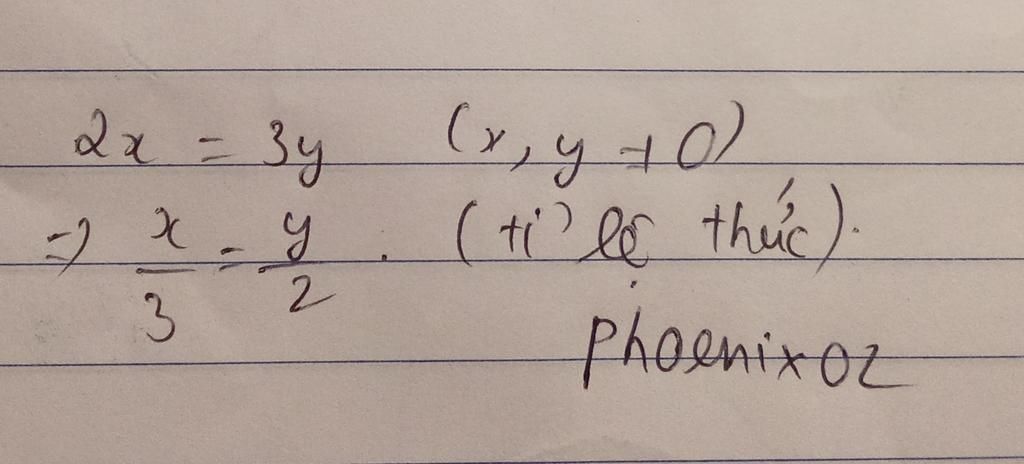 2x = 3y (x, y ≠ 0)
=> x/3 = y/2 . (tỉ lệ thức).
phoenixoz